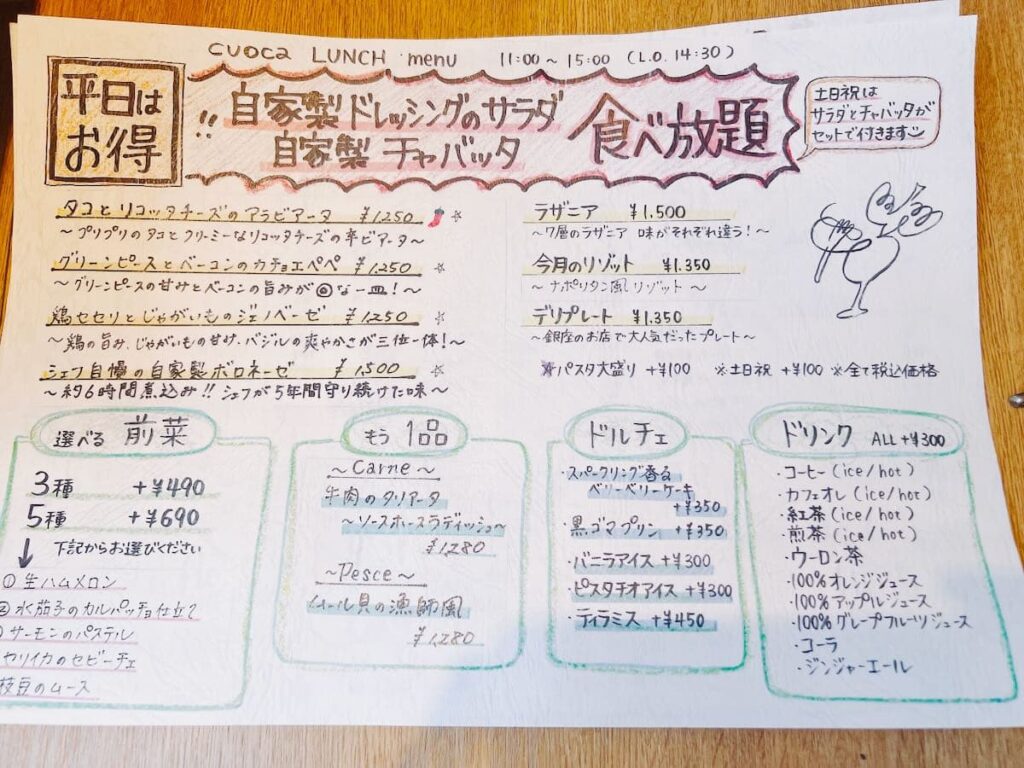 cuoca LUNCH menu 11:00～15:00 (L.O.14:30)
平日は
お得
!! 自家製ドレッシングのサラダ
自家製 チャバッタ
食べ放題
土日祝は
サラダとチャバッタが
セットで付きます
タコとリコッタチーズのアラビアータ ¥1,250 ☆
～プリプリのタコとクリーミーなリコッタチーズの辛ビアータ～
グリーンピースとベーコンのカチョエペペ ¥1,250 ☆
～グリーンピースの甘みとベーコンの旨みが◎な一皿！～
鶏セセリとじゃがいものジェノベーゼ ¥1,250 ☆
～鶏の旨み、じゃがいもの甘み、バジルの爽やかさが三位一体！～
シェフ自慢の自家製ボロネーゼ ¥1,500
～約6時間煮込み!! シェフが5年間守り続けた味～
ラザニア ¥1,500
～7層のラザニア 味がそれぞれ違う！～
今月のリゾット ¥1,350
～ナポリタン風リゾット～
デリプレート ¥1,350
～銀座のお店で大人気だったプレート～
※パスタ大盛り +¥100 ※土日祝 +¥100 ※全て税込価格
選べる 前菜
3種 +¥490
5種 +¥690
↓ 下記からお選びください
① 生ハムメロン
② 水茄子のカルパッチョ仕立て
サーモンのパステル
ヤリイカのセビーチェ
枝豆のムース
もう1品
～Carne～
牛肉のタリアータ
～ソースホースラディッシュ～
¥1,280
～Pesce～
ムール貝の漁師風
¥1,280
ドルチェ
・スパークリング香る
ベリーベリーケーキ
+¥350
・黒ゴマプリン +¥350
・バニラアイス +¥300
・ピスタチオアイス +¥300
・ティラミス +¥450
ドリンク ALL +¥300
・コーヒー (ice/hot)
・カフェオレ (ice/hot)
・紅茶 (ice/hot)
・煎茶 (ice/hot)
・ウーロン茶
・100% オレンジジュース
・100% アップルジュース
・100% グレープフルーツジュース
・コーラ
・ジンジャーエール